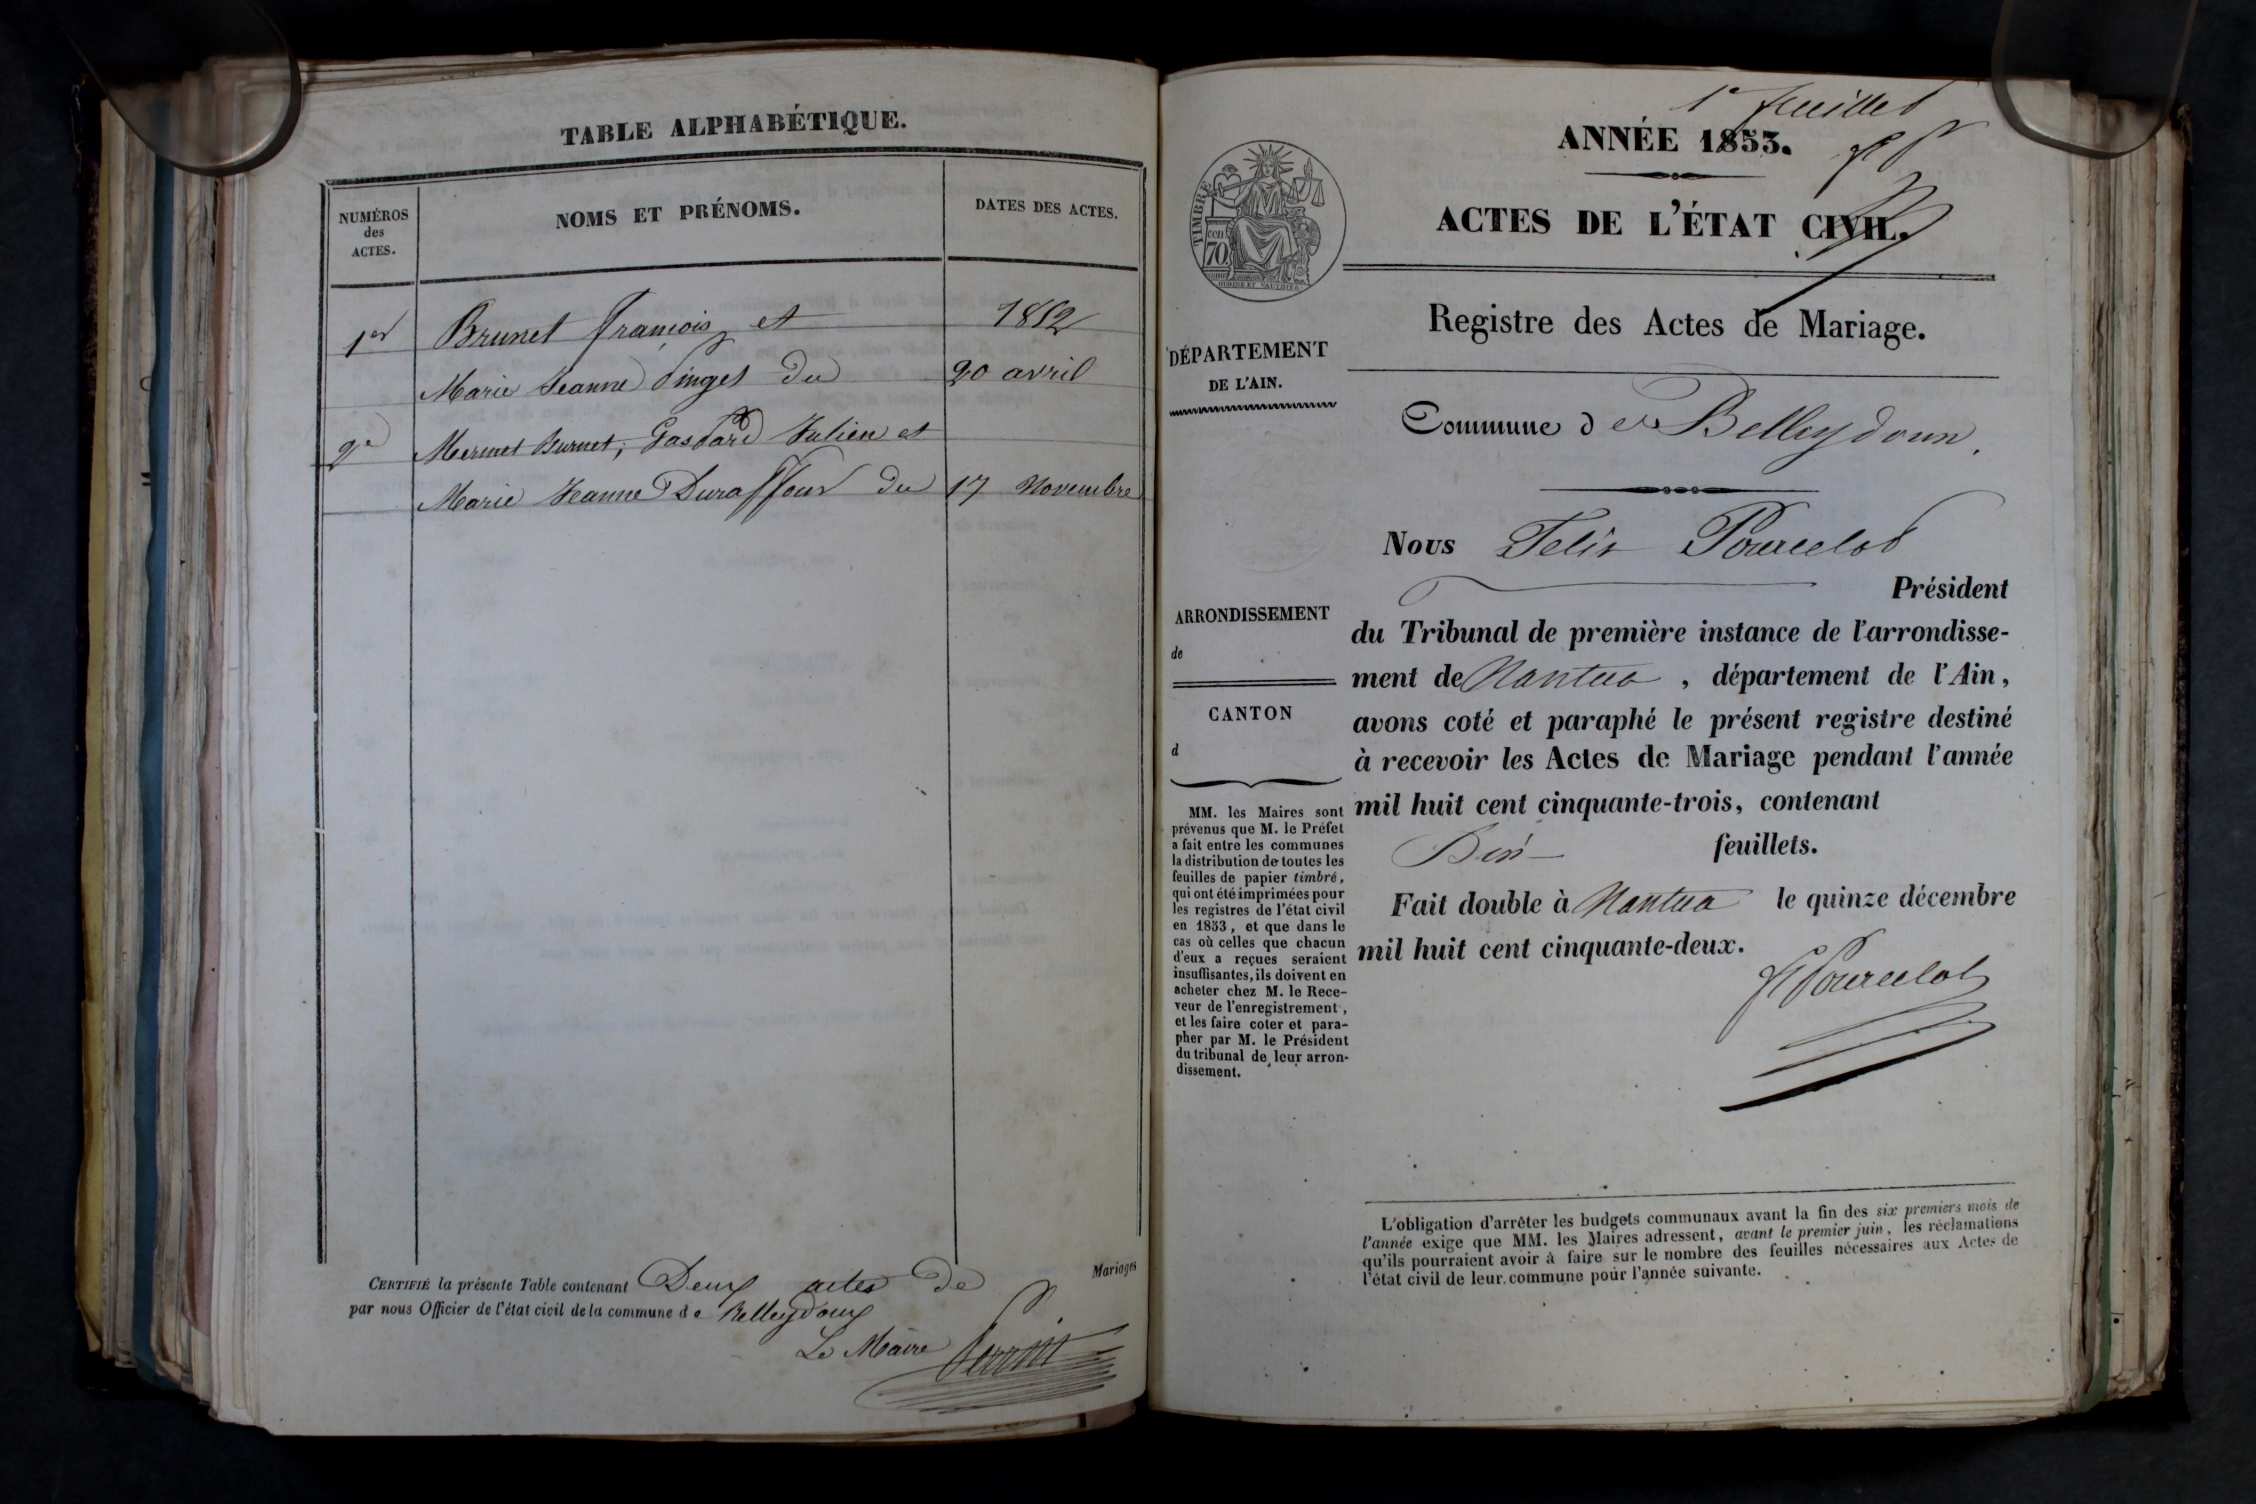 TABLE ALPHABÉTIQUE.
NUMÉROS
des
ACTES.
NOMS ET PRÉNOMS.
DATES DES ACTES.
1er Brunet François et 1852
Marie Jeanne Pinget du 20 avril
2e Mermet Burnet, Gaspard Julien et
Marie Jeanne Duraffour du 17 Novembre
CERTIFIÉ la présente Table contenant Deux actes de Mariages
par nous Officier de l'état civil de la commune de Belleydoux
Le Maire Perrin
1er feuillet
ANNÉE 1853.
ACTES DE L'ÉTAT CIVIL.
TIMBRE
70 cen
Registre des Actes de Mariage.
DÉPARTEMENT
DE L'AIN.
Commune de Belleydoux.
Nous Felix Pourcelot
Président
ARRONDISSEMENT
de
CANTON
d
du Tribunal de première instance de l'arrondisse-
ment de Nantua, département de l'Ain,
avons coté et paraphé le présent registre destiné
à recevoir les Actes de Mariage pendant l'année
mil huit cent cinquante-trois, contenant
feuillets.
Fait double à Nantua le quinze décembre
mil huit cent cinquante-deux.
F Pourcelot
MM. les Maires sont
prévenus que M. le Préfet
a fait entre les communes
la distribution de toutes les
feuilles de papier timbré,
qui ont été imprimées pour
les registres de l'état civil
en 1853, et que dans le
cas où celles que chacun
d'eux a reçues seraient
insuffisantes, ils doivent en
acheter chez M. le Rece-
veur de l'enregistrement,
et les faire coter et para-
pher par M. le Président
du tribunal de leur arron-
dissement.
L'obligation d'arrêter les budgets communaux avant la fin des six premiers mois de
l'année exige que MM. les Maires adressent, avant le premier juin, les réclamations
qu'ils pourraient avoir à faire sur le nombre des feuilles nécessaires aux Actes de
l'état civil de leur commune pour l'année suivante.